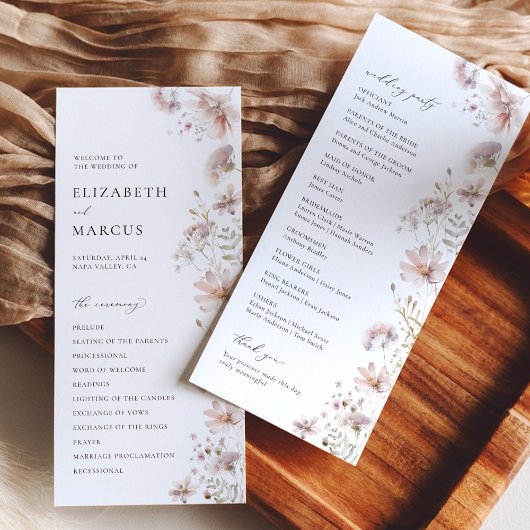 WELCOME TO
THE WEDDING OF
ELIZABETH
and
MARCUS
SATURDAY, APRIL 24
NAPA VALLEY, CA
the ceremony
PRELUDE
SEATING OF THE PARENTS
PROCESSIONAL
WORD OF WELCOME
READINGS
LIGHTING OF THE CANDLES
EXCHANGE OF VOWS
EXCHANGE OF THE RINGS
PRAYER
MARRIAGE PROCLAMATION
RECESSIONAL
wedding party
OFFICIANT
Jack Andrew Martin
PARENTS OF THE BRIDE
Alice and Charlie Anderson
PARENTS OF THE GROOM
Donna and George Jackson
MAID OF HONOR
Lindsey Nichols
BEST MAN
James Carter
BRIDESMAIDS
Lauren Clark / Marie Watson
Emma Jones / Hannah Sanders
GROOMSMEN
Anthony Bradley
FLOWER GIRLS
Eliana Anderson / Daisy Jones
RING BEARERS
Daniel Jackson / Evan Jackson
USHERS
Ethan Jackson / Michael Scott
Marie Anderson / Tom Smith
thank you
Your presence made this day
truly meaningful